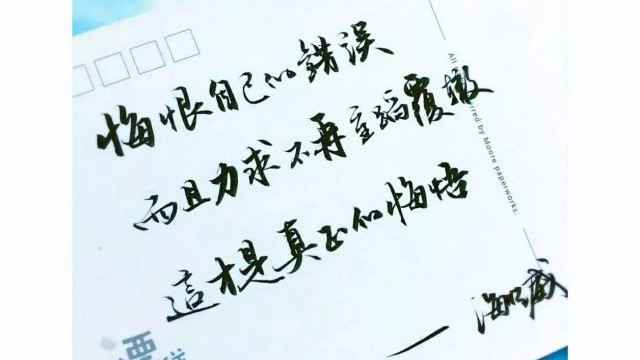 悔恨自己的錯誤
而且力求不再重蹈覆轍
這才是真正的悔悟
— 海明威
All
by Moore paperworks.